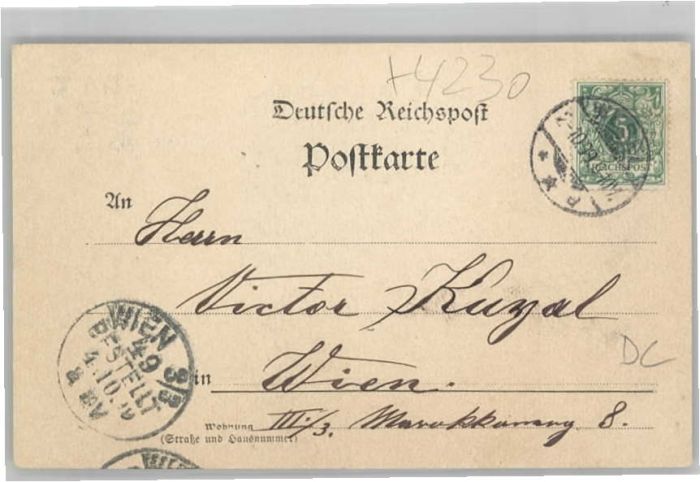 +4230
Deutsche Reichspost
Postkarte
5
REICHSPOST
An
Herrn
Victor Kuzal
WIEN 3/3
49
BESTELLT
4.10.99
8
DC
in Wien.
Wohnung
(Straße und Hausnummer)
III./3. Marokkanerg 8.